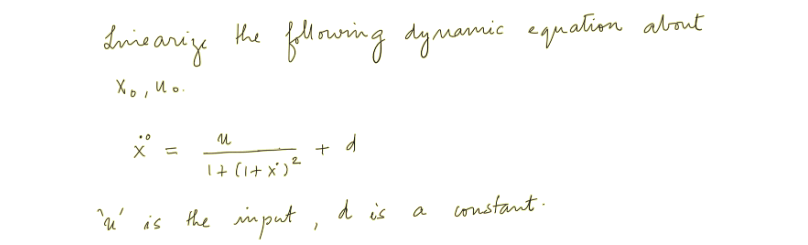 Linearize the following dynamic equation about
x₀, u₀.
ẍ = u / (1 + (1 + ẋ)²) + d
'u' is the input, d is a constant.